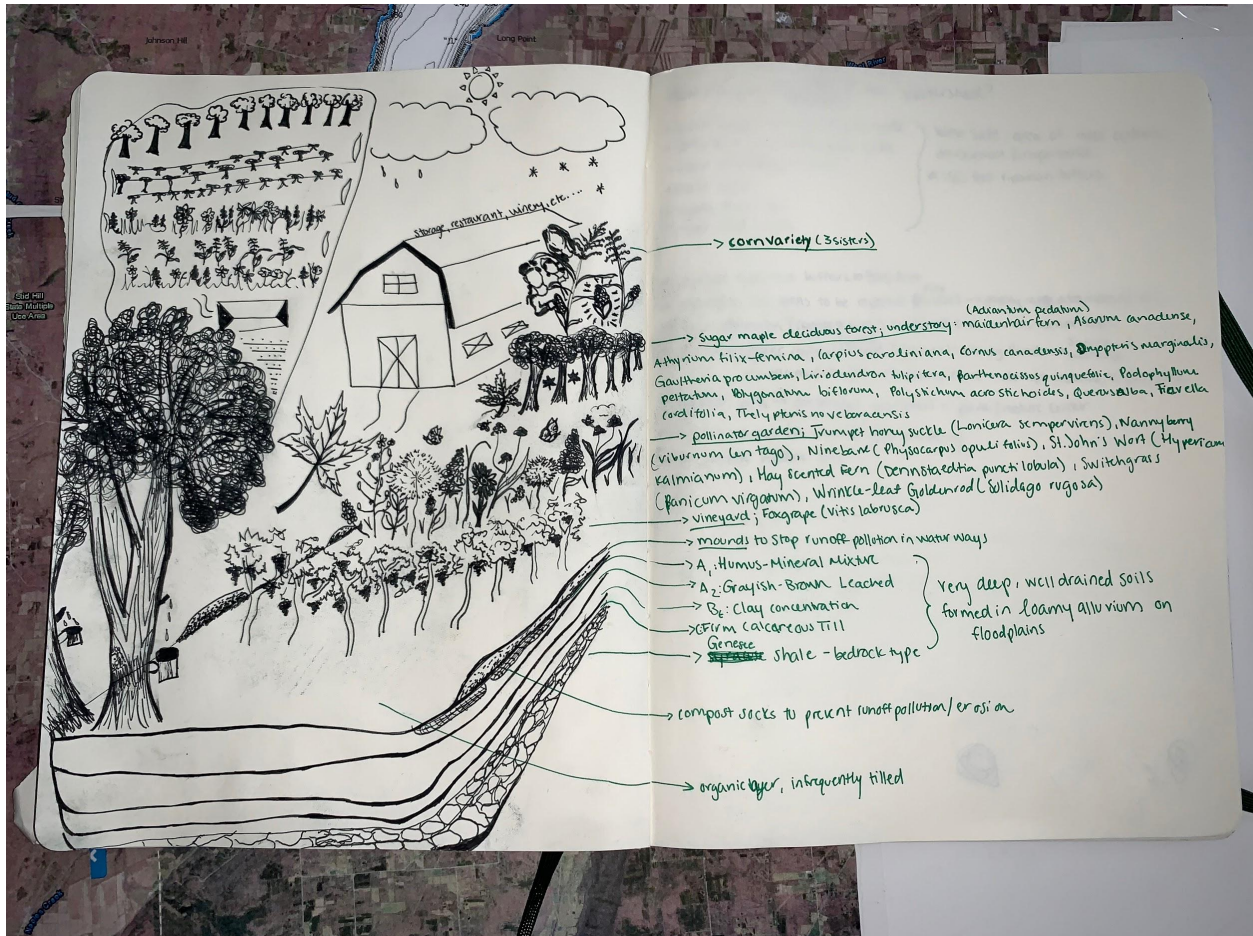 Johnson Hill
Long Point
West River
Stid Hill
State Multiple
Use Area
storage, restaurant, winery, etc....
corn variety (3 sisters)
(Adiantum pedatum)
sugar maple deciduous forest; understory: maidenhair fern, Asarum canadense,
Athyrium filix-femina, Carpius caroliniana, Cornus canadensis, Dryopteris marginalis,
Gaultheria procumbens, Liriodendron tulipifera, Parthenocissus quinquefolie, Podophyllum
peltatum, Polygonatum biflorum, Polystichum acrostichoides, Querus alba, Tiarella
cordifolia, Thelypteris noveboracensis
pollinator garden; Trumpet honeysuckle (Lonicera sempervirens), Nannyberry
(viburnum lentago), Ninebane (Physocarpus opulifolius), St. John's Wort (Hypericum
kalmianum), Hay scented Fern (Dennstaedtia punctilobula), Switchgrass
(Panicum virgatum), Wrinkle-leaf Goldenrod (Solidago rugosa)
vineyard; Foxgrape (vitis labrusca)
mounds to stop runoff pollution in water ways
A1: Humus-Mineral Mixture
A2: Grayish-Brown Leached
Bt: Clay concentration
C: Firm Calcareous Till
Genesee
shale - bedrock type
very deep, well drained soils
formed in loamy alluvium on
floodplains
compost socks to prevent runoff pollution/erosion
organic layer, infrequently tilled